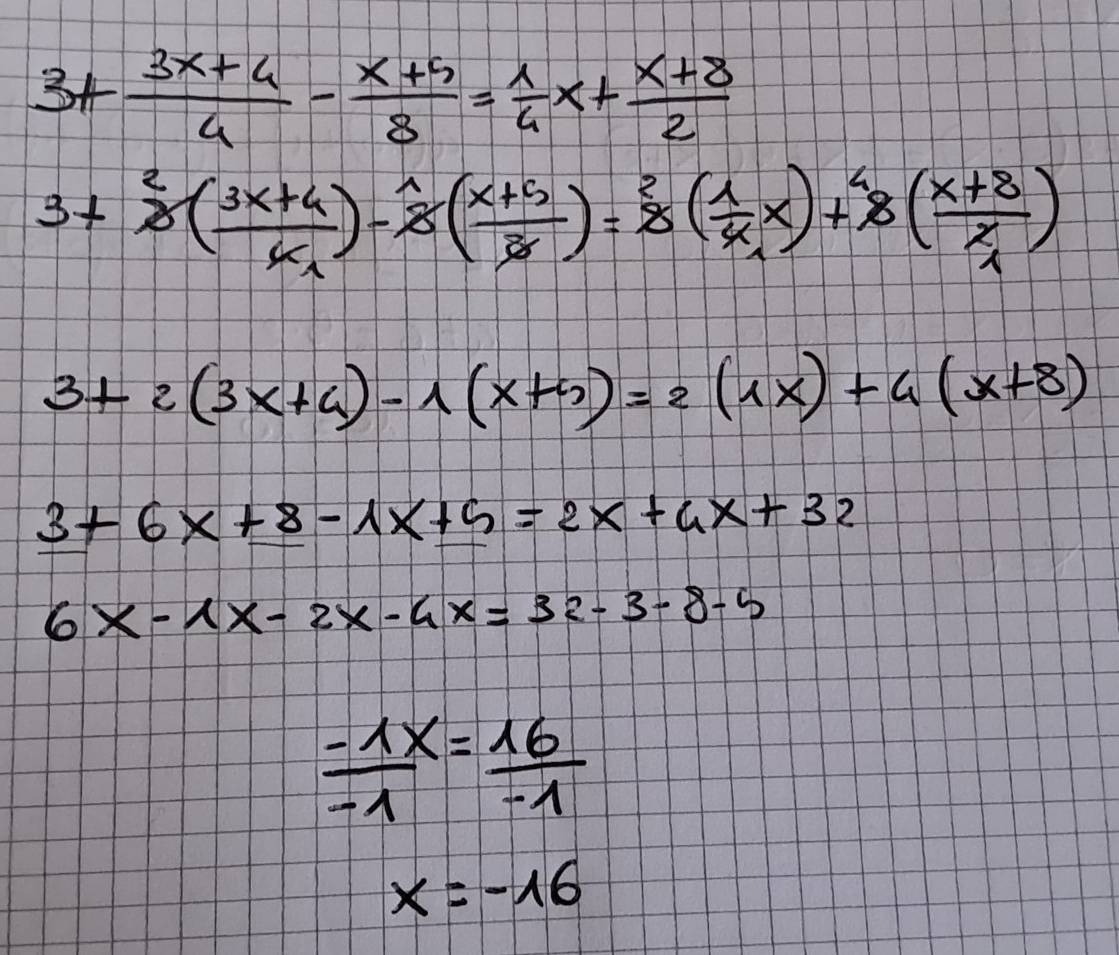 3+ (3x+4)/4 - (x+5)/8 = 1/4 x + (x+8)/2
3+ 8² ((3x+4)/4₁) - 8¹ ((x+5)/8) = 8² (1/4₁ x) + 8⁴ ((x+8)/2₁)
3+ 2(3x+4) - 1(x+5) = 2 (1x) + 4 (x+8)
3+ 6x+8 - 1x+5 = 2x + 4x + 32
6x - 1x - 2x - 4x = 32 - 3 - 8 - 5
-1x/-1 = 16/-1
x = -16